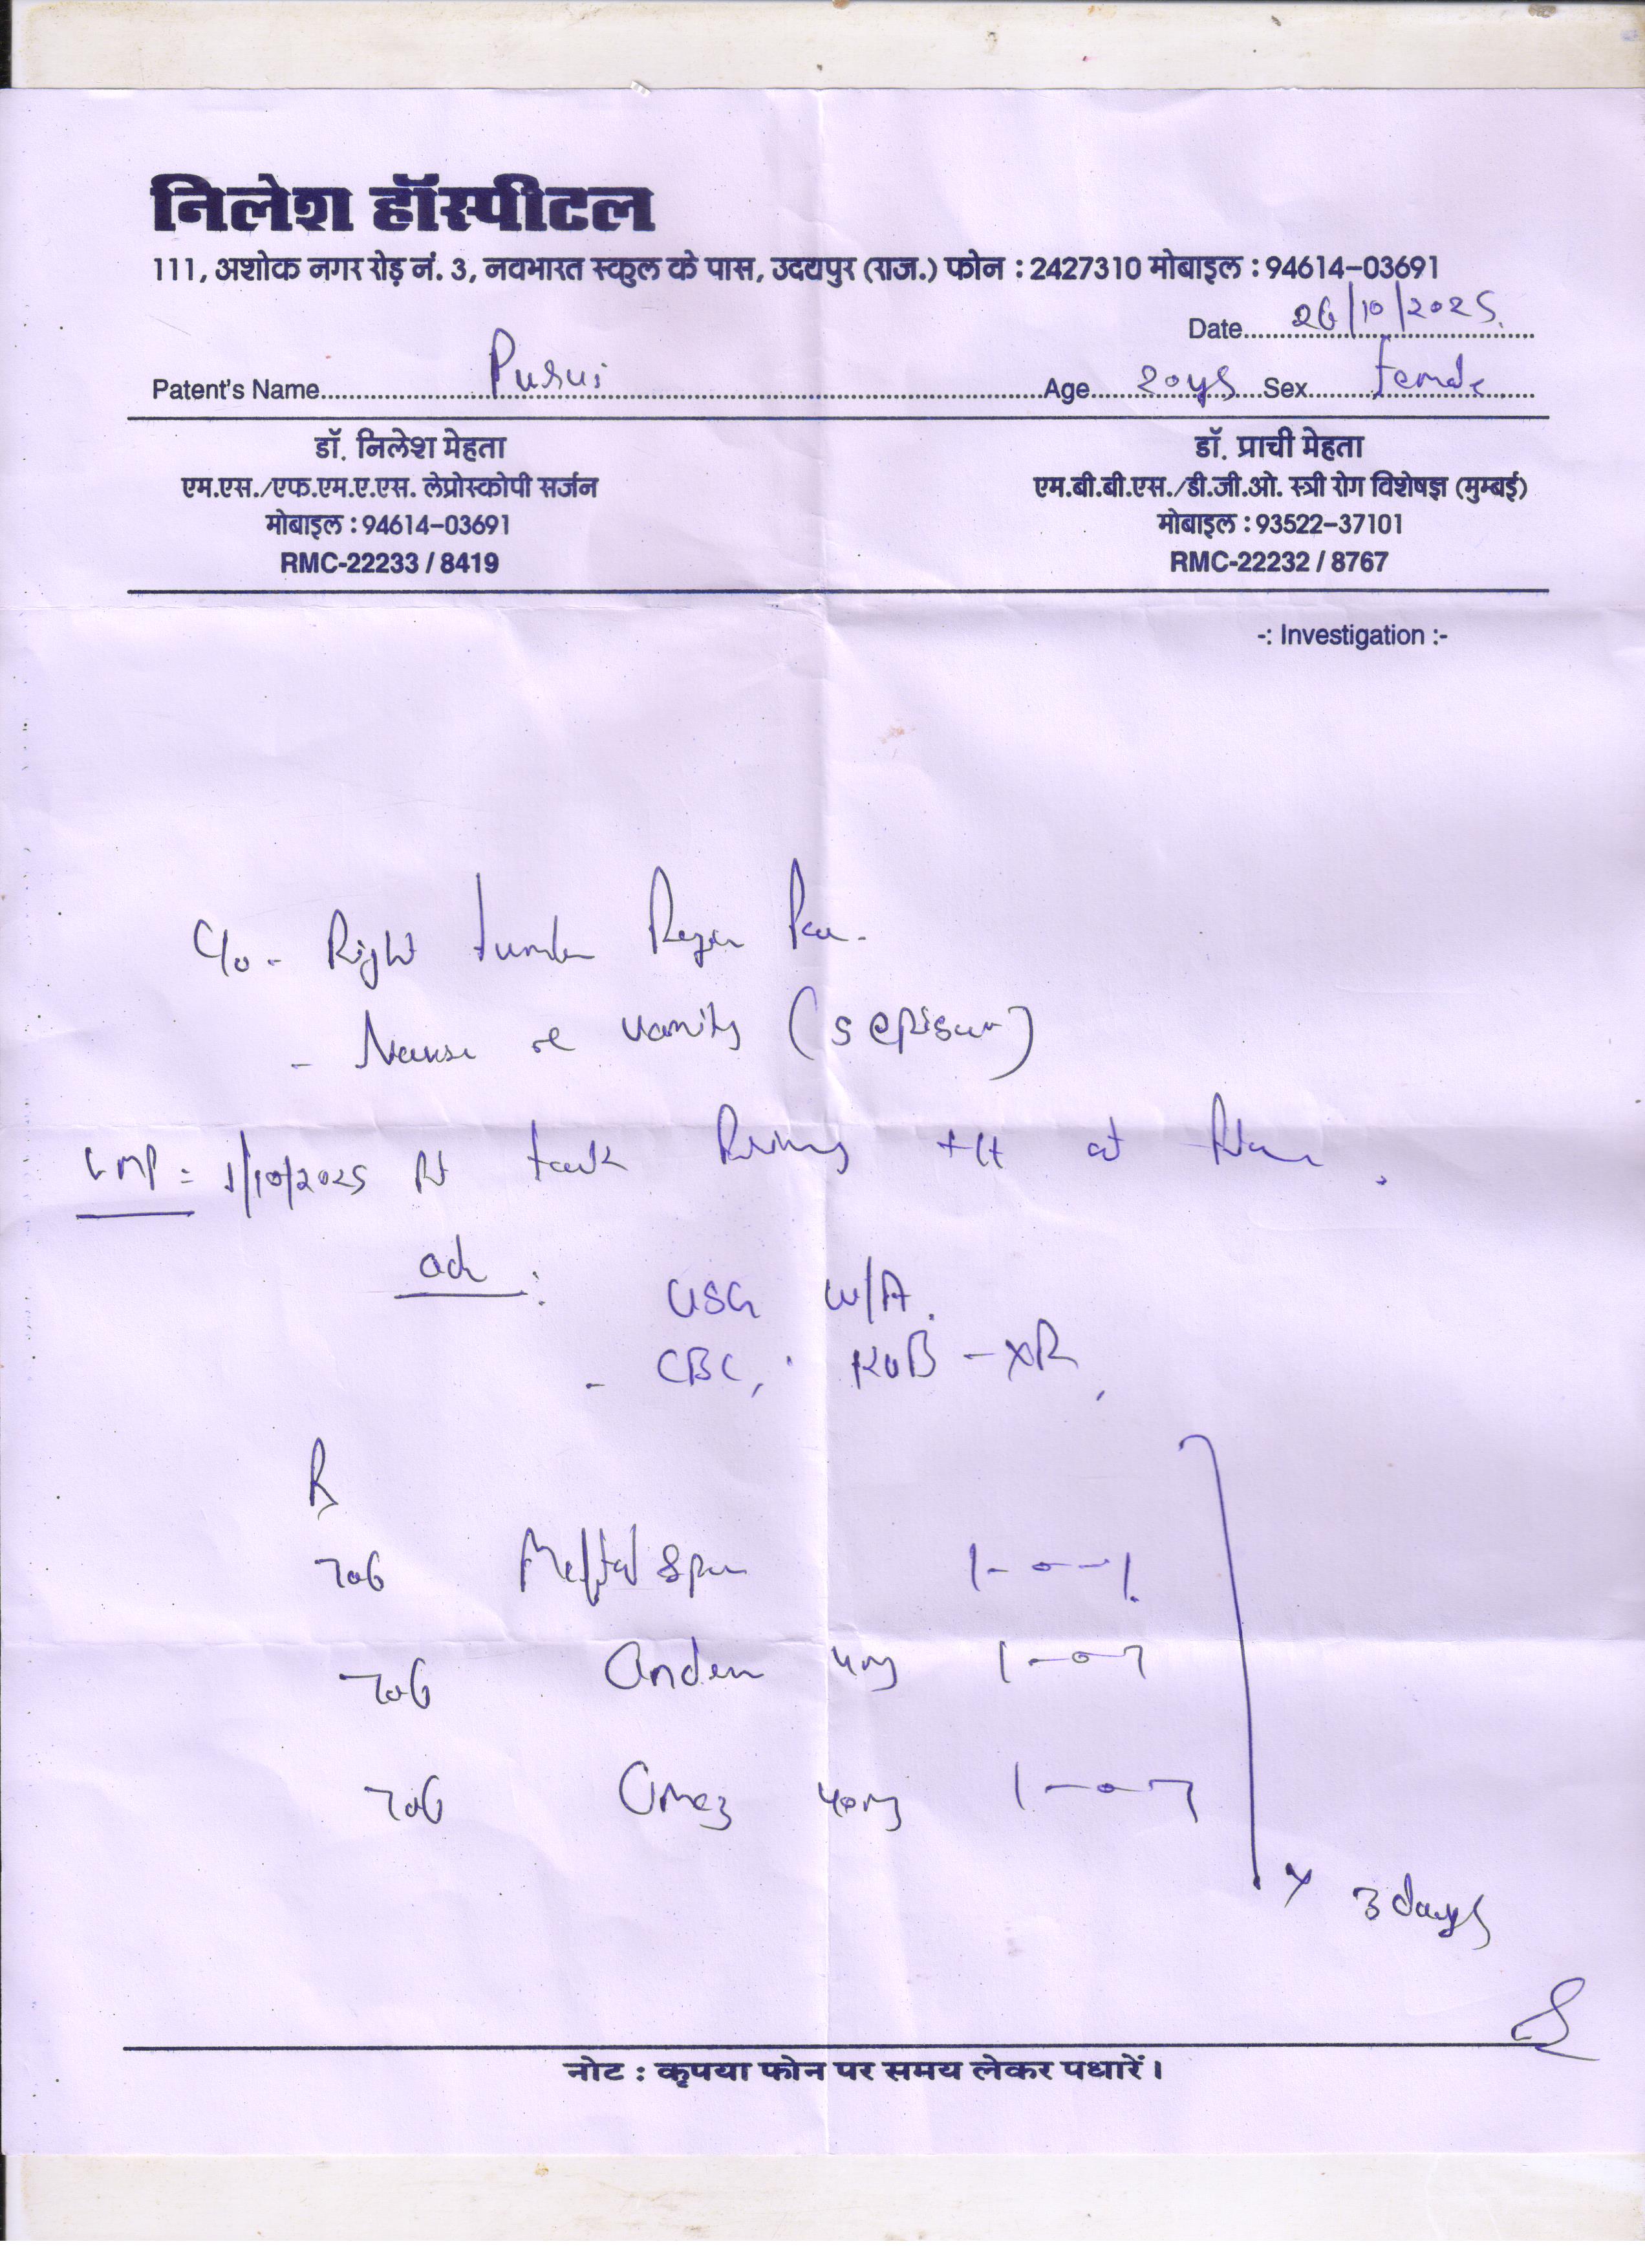 निलेश हॉस्पीटल
111, अशोक नगर रोड़ नं. 3, नवभारत स्कुल के पास, उदयपुर (राज.) फोन : 2427310 मोबाइल : 94614-03691
Date 26/10/2025
Patent's Name Age 20 yrs Sex Female
डॉ. निलेश मेहता
एम.एस./एफ.एम.ए.एस. लेप्रोस्कोपी सर्जन
मोबाइल : 94614-03691
RMC-22233 / 8419
डॉ. प्राची मेहता
एम.बी.बी.एस./डी.जी.ओ. स्त्री रोग विशेषज्ञ (मुम्बई)
मोबाइल : 93522-37101
RMC-22232 / 8767
-: Investigation :-
C/o - Right
-
LMP = 1/10/2025 at
USG W/A.
- CBC, KUB - XR,
R
Tab Meftal spas 1-0-1
Tab 4mg 1-0-1
Tab Omez 40mg 1-0-1
x 3 days
नोट : कृपया फोन पर समय लेकर पधारें।